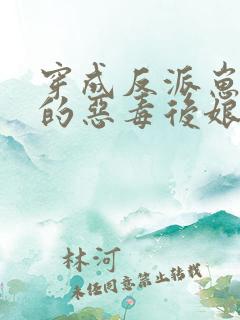 穿成反派崽
的惡毒後娘
林河
未经同意禁止转载